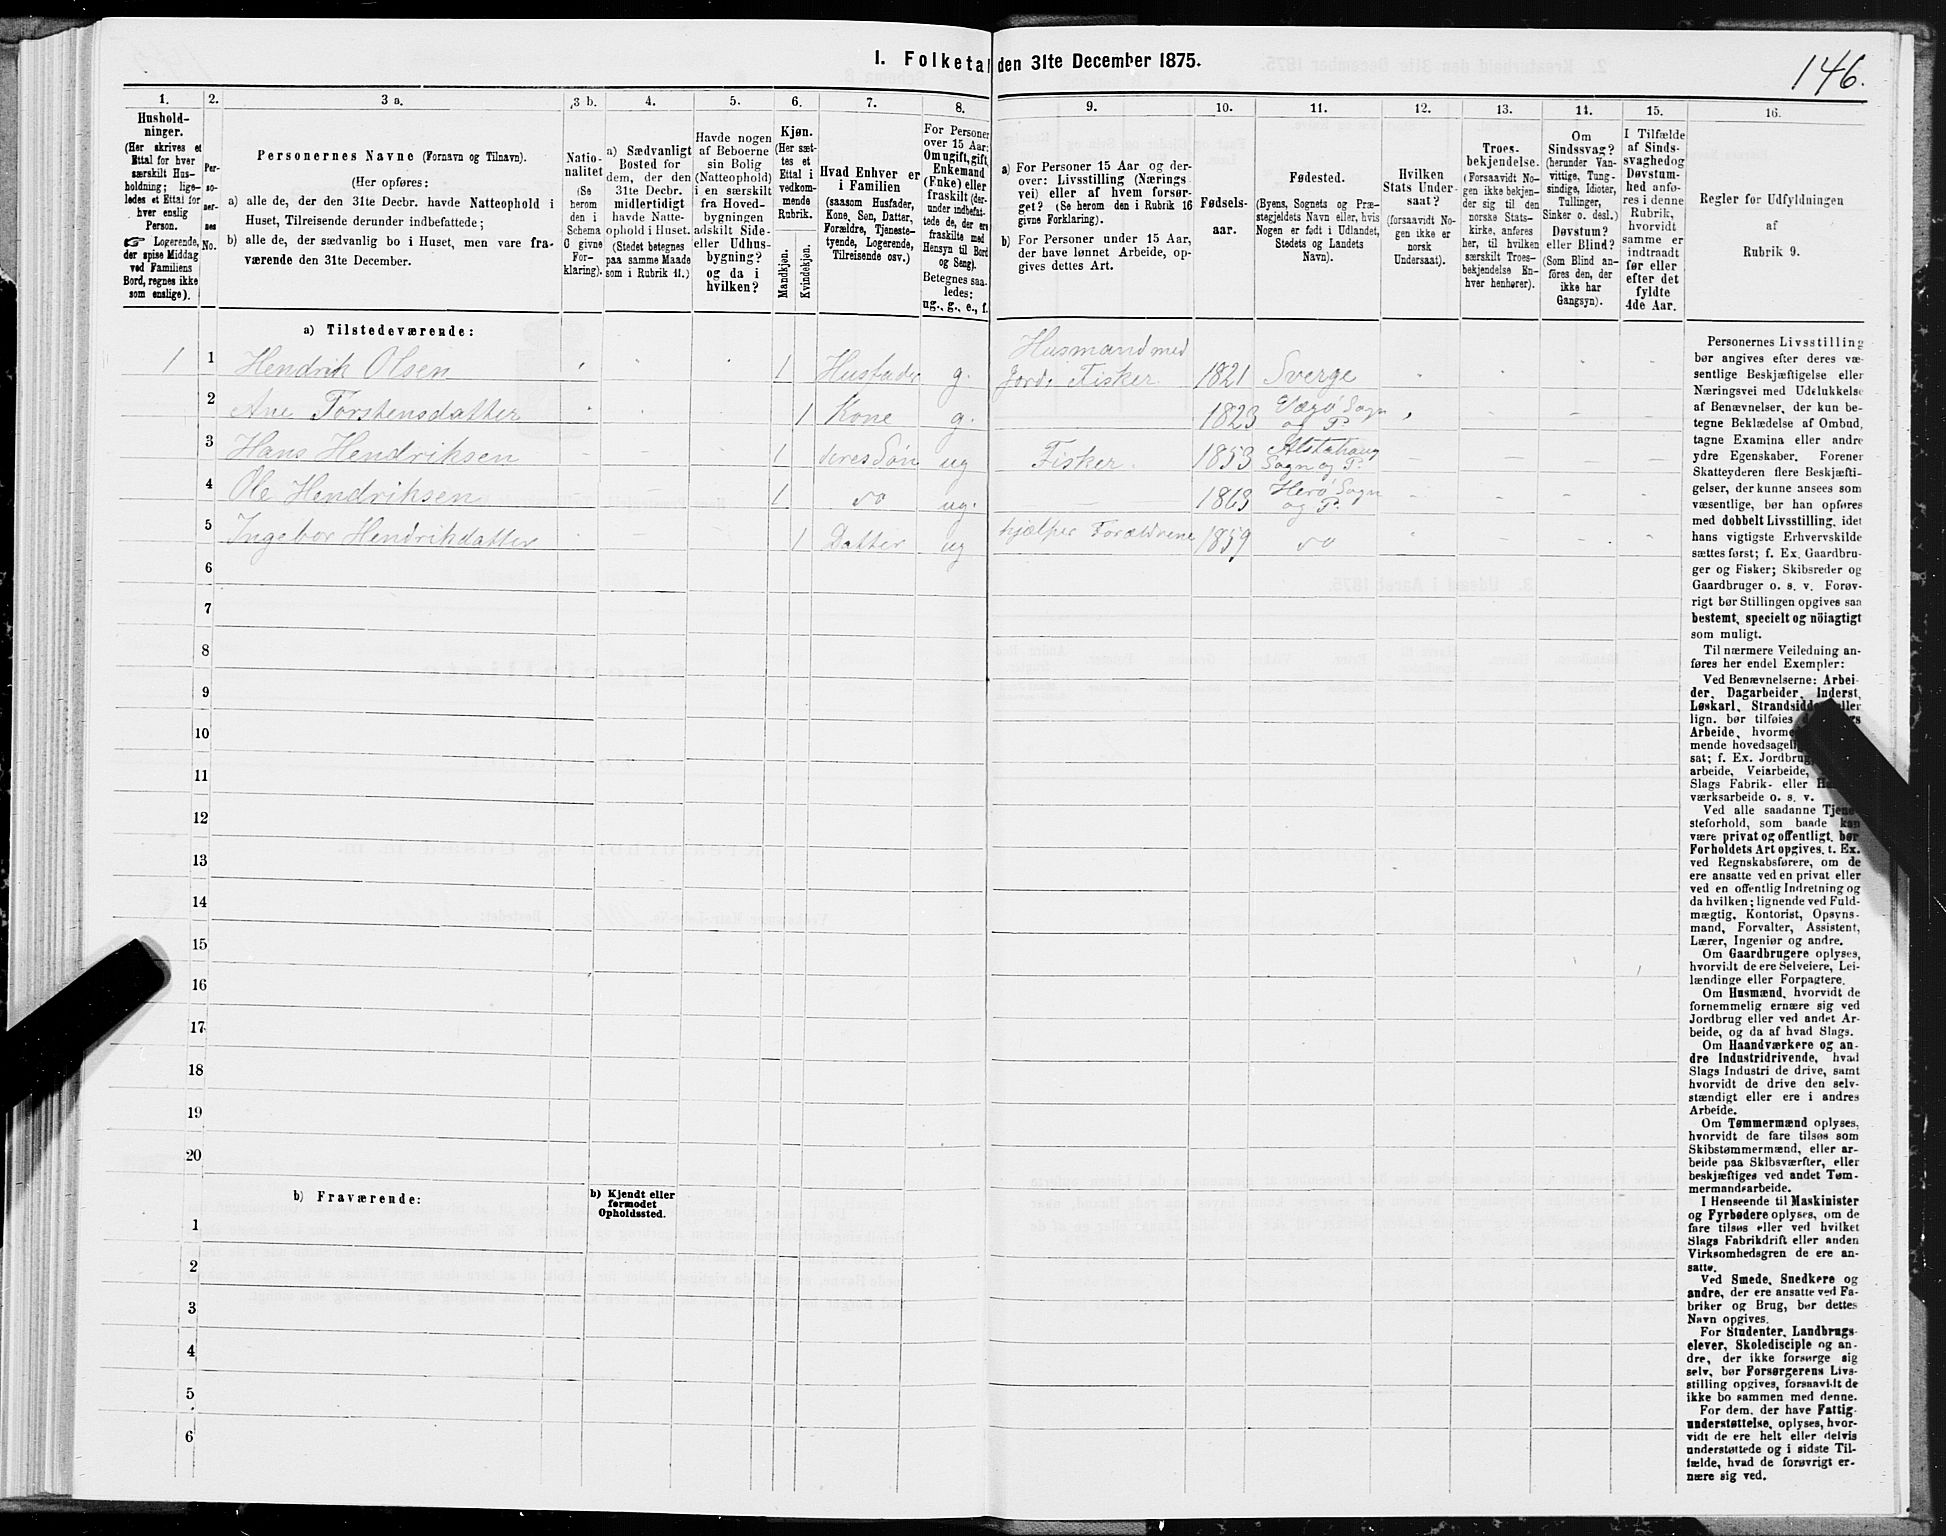 I. Folketal den 31te December 1875.
146.
1.
Hushold-
ninger.
(Her skrives et
Ettal for hver
særskilt Hus-
holdning; lige-
ledes et Ettal for
hver enslig
Person.
☞ Logerende,
der spise Middag
ved Familiens
Bord, regnes ikke
som enslige).
2.
Per-
so-
ner-
nes
No.
3 a.
Personernes Navne (Fornavn og Tilnavn).
(Her opføres:
a) alle de, der den 31te Decbr. havde Natteophold i
Huset, Tilreisende derunder indbefattede;
b) alle de, der sædvanlig bo i Huset, men vare fra-
værende den 31te December.
3 b.
Natio-
nalitet
(Se
herom
den i
Schema
C givne
For-
klaring).
4.
a) Sædvanligt
Bosted for
dem, der den
31te Decbr.
midlertidigt
havde Natte-
ophold i Huset.
(Stedet betegnes
paa samme Maade
som i Rubrik 11.)
5.
Havde nogen
af Beboerne
sin Bolig
(Natteophold)
i en særskilt
fra Hoved-
bygningen
adskilt Side-
eller Udhus-
bygning?
og da i
hvilken?
6.
Kjøn.
(Her sæt-
tes et
Ettal i
vedkom-
mende
Rubrik.
Mandkjøn.
Kvindekjøn.
7.
Hvad Enhver er
i Familien
(saasom Husfader,
Kone, Søn, Datter,
Forældre, Tjeneste-
tyende, Logerende,
Tilreisende osv.)
8.
For Personer
over 15 Aar:
Om ugift, gift,
Enkemand
(Enke) eller
fraskilt (der-
under indbefat-
tede de, der ere
fraskilte med
Hensyn til Bord
og Seng).
Betegnes saa-
ledes:
ug., g., e., f.
9.
a) For Personer 15 Aar og der-
over: Livsstilling (Nærings-
vei) eller af hvem forsør-
get? (Se herom den i Rubrik 16
givne Forklaring).
b) For Personer under 15 Aar,
der have lønnet Arbeide, op-
gives dettes Art.
10.
Fødsels-
aar.
11.
Fødested.
(Byens, Sognets og Præ-
stegjeldets Navn eller, hvis
Nogen er født i Udlandet,
Stedets og Landets
Navn).
12.
Hvilken
Stats Under-
saat?
(forsaavidt No-
gen ikke er
norsk
Undersaat).
13.
Troes-
bekjendelse.
(Forsaavidt No-
gen ikke bekjen-
der sig til den
norske Stats-
kirke, anføres
her, til hvilken
særskilt Troes-
bekjendelse En-
hver henhører).
14.
Om
Sindssvag?
(herunder Van-
vittige, Tung-
sindige, Idioter,
Tullinger,
Sinker o. desl.)
Døvstum?
eller Blind?
(Som Blind an-
føres den, der
ikke har
Gangsyn).
15.
I Tilfælde
af Sinds-
svaghed og
Døvstum-
hed anfø-
res i denne
Rubrik,
hvorvidt
samme er
indtraadt
før eller
efter det
fyldte
4de Aar.
16.
Regler for Udfyldningen
af
Rubrik 9.
a) Tilstedeværende:
1 1 Hendrik Olsen 1 Husfader g. Husmand med Jord. Fisker 1821 Sverge
2 Ane Torstensdatter 1 Kone g. 1823 Værø Sogn og P.
3 Hans Hendriksen 1 Søn ug Fisker. 1853 Alstahaug Sogn og P.
4 Ole Hendriksen 1 do ug. 1863 Herø Sogn og P.
5 Ingebor Hendrikdatter 1 Datter ug hjælper Forældrene 1859 do
6
7
8
9
10
11
12
13
14
15
16
17
18
19
20
b) Fraværende:
b) Kjendt eller
formodet
Opholdssted.
1
2
3
4
5
6
Personernes Livsstilling
bør angives efter deres væ-
sentlige Beskjæftigelse eller
Næringsvei med Udelukkelse
af Benævnelser, der kun be-
tegne Beklædelse af Ombud,
tagne Examina eller andre
ydre Egenskaber. Forener
Skatteyderen flere Beskjæfti-
gelser, der kunne ansees som
væsentlige, bør han opføres
med dobbelt Livsstilling, idet
hans vigtigste Erhvervskilde
sættes først; f. Ex. Gaardbru-
ger og Fisker; Skibsreder og
Gaardbruger o. s. v. Forøv-
rigt bør Stillingen opgives saa
bestemt, specielt og nöiagtigt
som muligt.
Til nærmere Veiledning an-
føres her endel Exempler:
Ved Benævnelserne: Arbei-
der, Dagarbeider, Inderst,
Løskarl, Strandsidder eller
lign. bør tilføies
Arbeide, hvorme
mende hovedsagelig
sat; f. Ex. Jordbrug,
arbeide, Veiarbeide,
Slags Fabrik- eller
værksarbeide o. s. v.
Ved alle saadanne Tjene-
steforhold, som baade kan
være privat og offentligt, bør
Forholdets Art opgives, t. Ex.
ved Regnskabsførere, om de
ere ansatte ved en privat eller
ved en offentlig Indretning og
da hvilken; lignende ved Fuld-
mægtig, Kontorist, Opsyns-
mand, Forvalter, Assistent,
Lærer, Ingeniør og andre.
Om Gaardbrugere oplyses,
hvorvidt de ere Selveiere, Lei-
lændinge eller Forpagtere.
Om Husmænd, hvorvidt de
fornemmelig ernære sig ved
Jordbrug eller ved andet Ar-
beide, og da af hvad Slags.
Om Haandværkere og an-
dre Industridrivende, hvad
Slags Industri de drive, samt
hvorvidt de drive den selv-
stændigt eller ere i andres
Arbeide.
Om Tømmermænd oplyses,
hvorvidt de fare tilsøs som
Skibstømmermænd, eller ar-
beide paa Skibsværfter, eller
beskjæftiges ved andet Tøm-
mermandsarbeide.
I Henseende til Maskinister
og Fyrbødere oplyses, om de
fare tilsøs eller ved hvilket
Slags Fabrikdrift eller anden
Virksomhedsgren de ere an-
satte.
Ved Smede, Snedkere og
andre, der ere ansatte ved Fa-
briker og Brug, bør dettes
Navn opgives.
For Studenter, Landbrugs-
elever, Skoledisciple og an-
dre, der ikke forsørge sig
selv, bør Forsørgerens Livs-
stilling opgives, forsaavidt de
ikke bo sammen med denne.
For dem, der have Fattig-
understøttelse, oplyses, hvor-
vidt de ere helt eller delvis
understøttede og i sidste Til-
fælde, hvad de forøvrigt er-
nære sig ved.